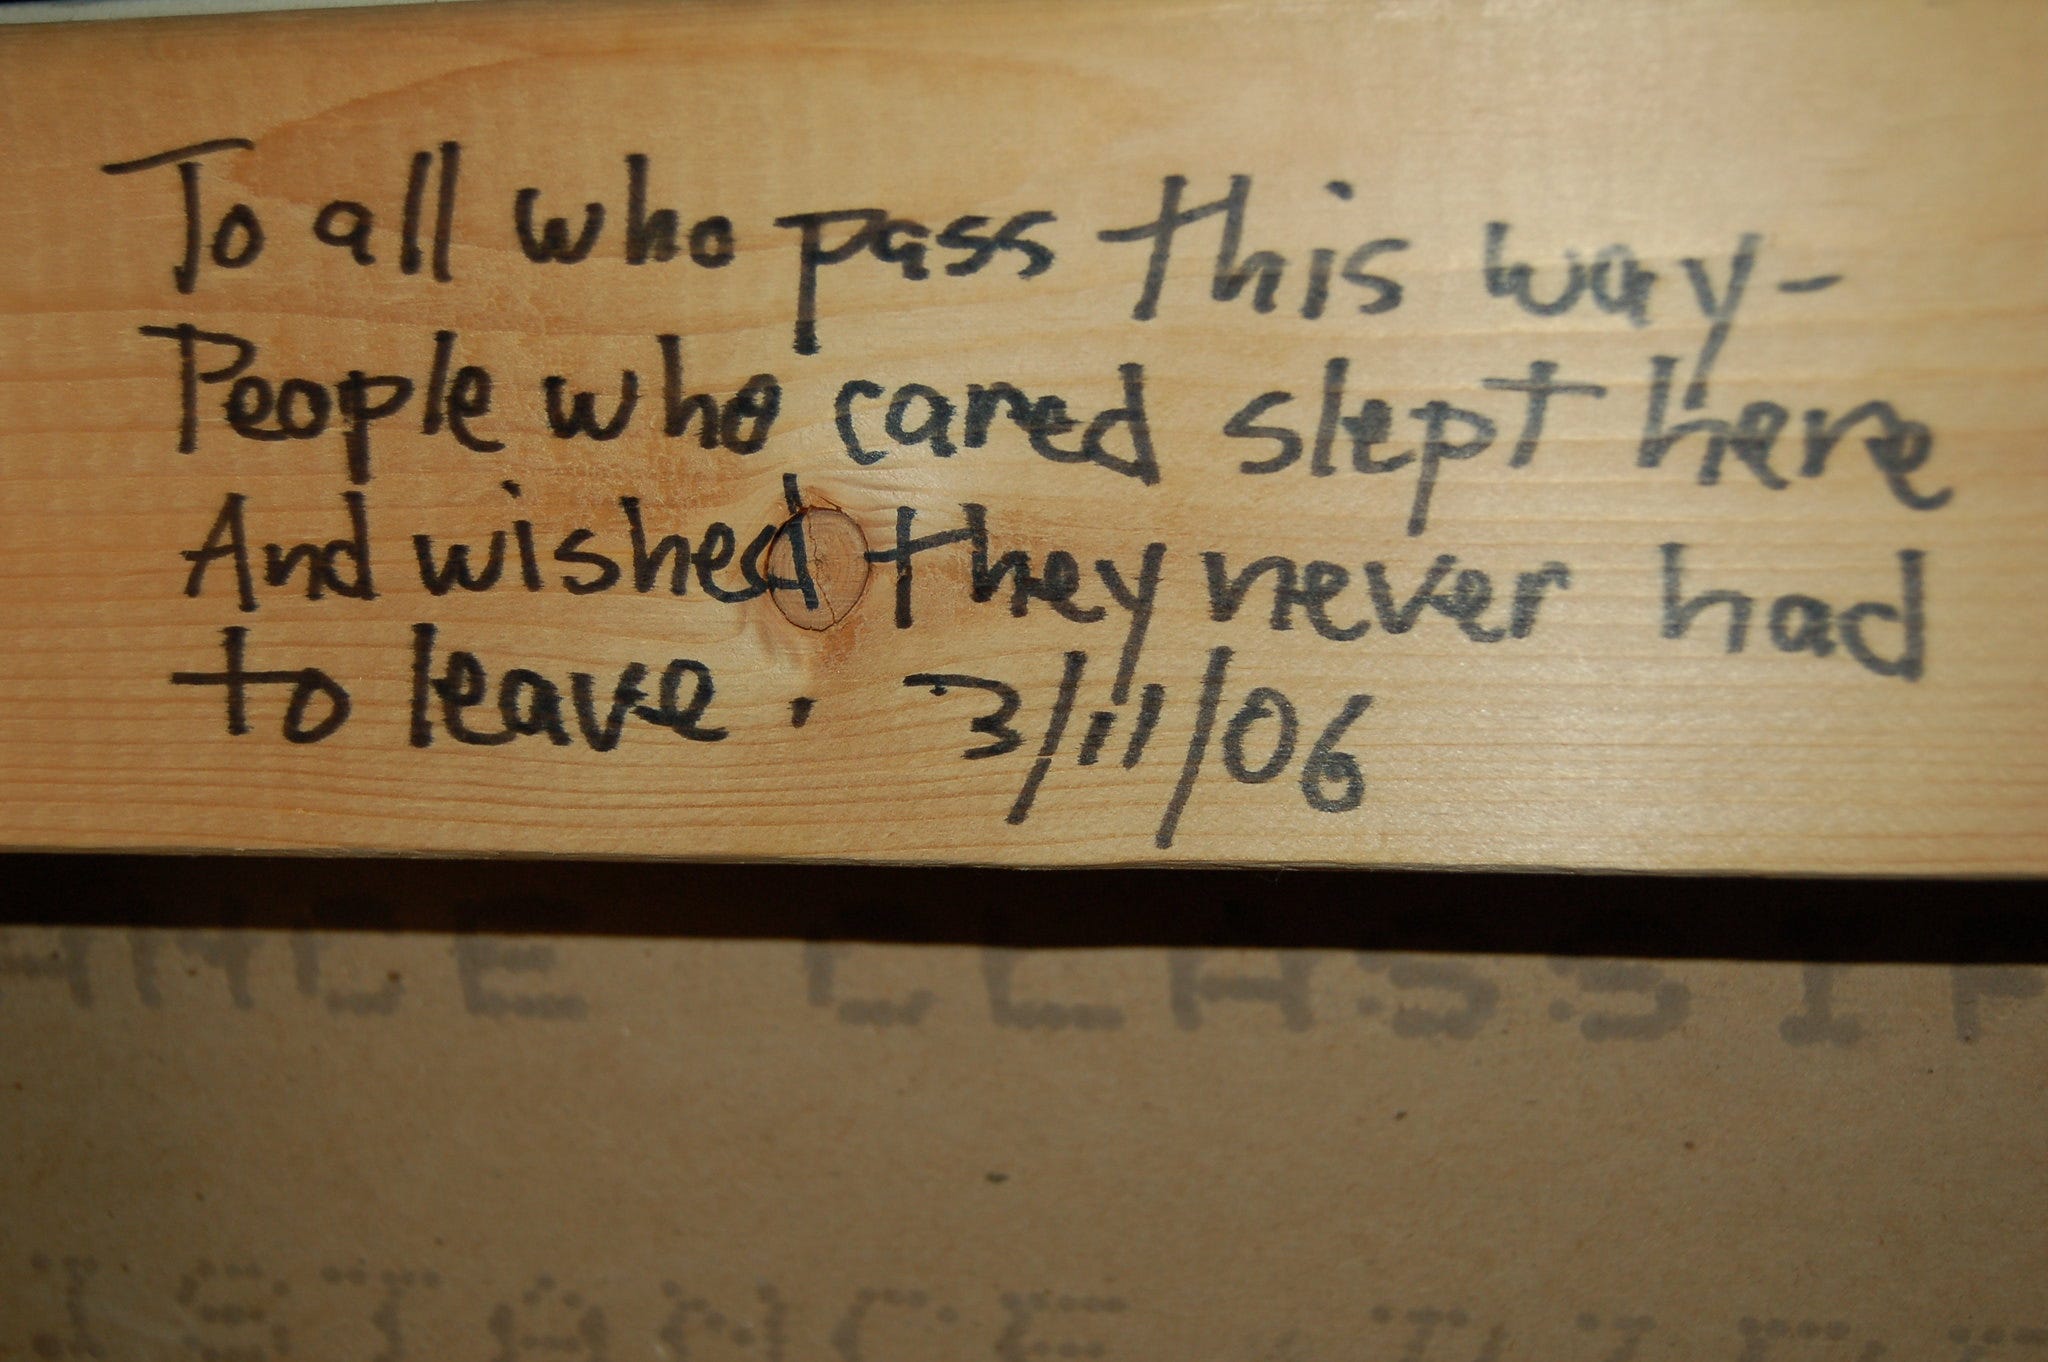 To all who pass this way-
People who cared slept here
And wished they never had
to leave. 3/11/06